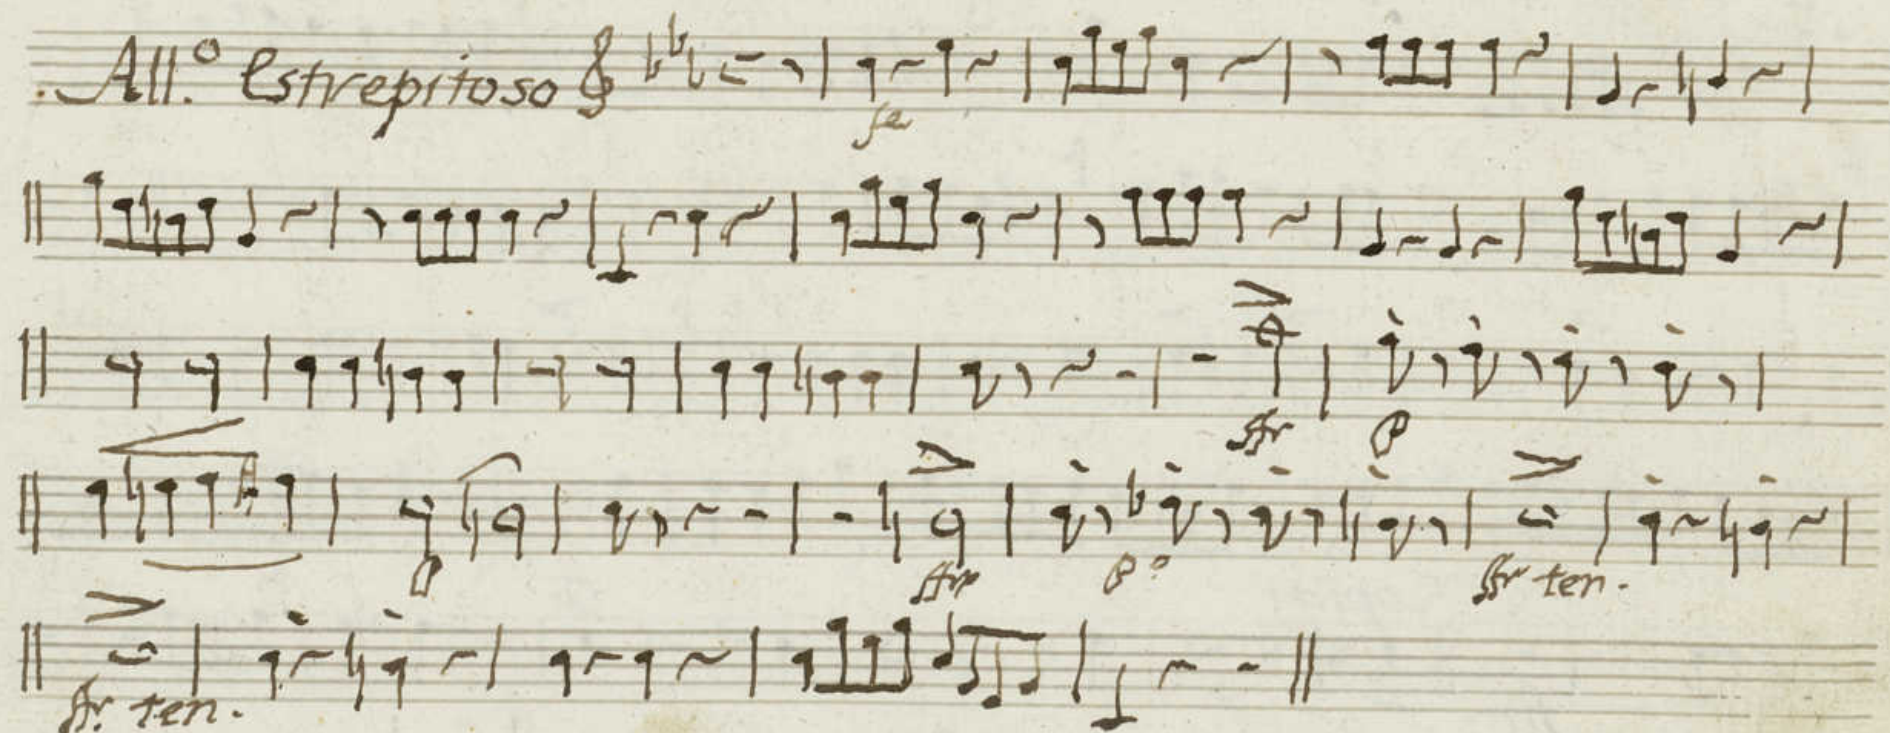 All.º Estrepitoso
fe
sfr P
P sfr P.º sfr ten.
sfr. ten.